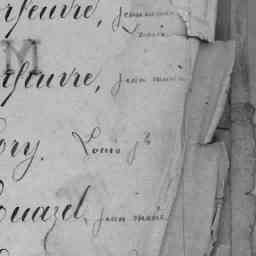 rfeuvre,
Louis
M
rfeuvre, jean marie
ory. Louis jh
ouazel, jean marie